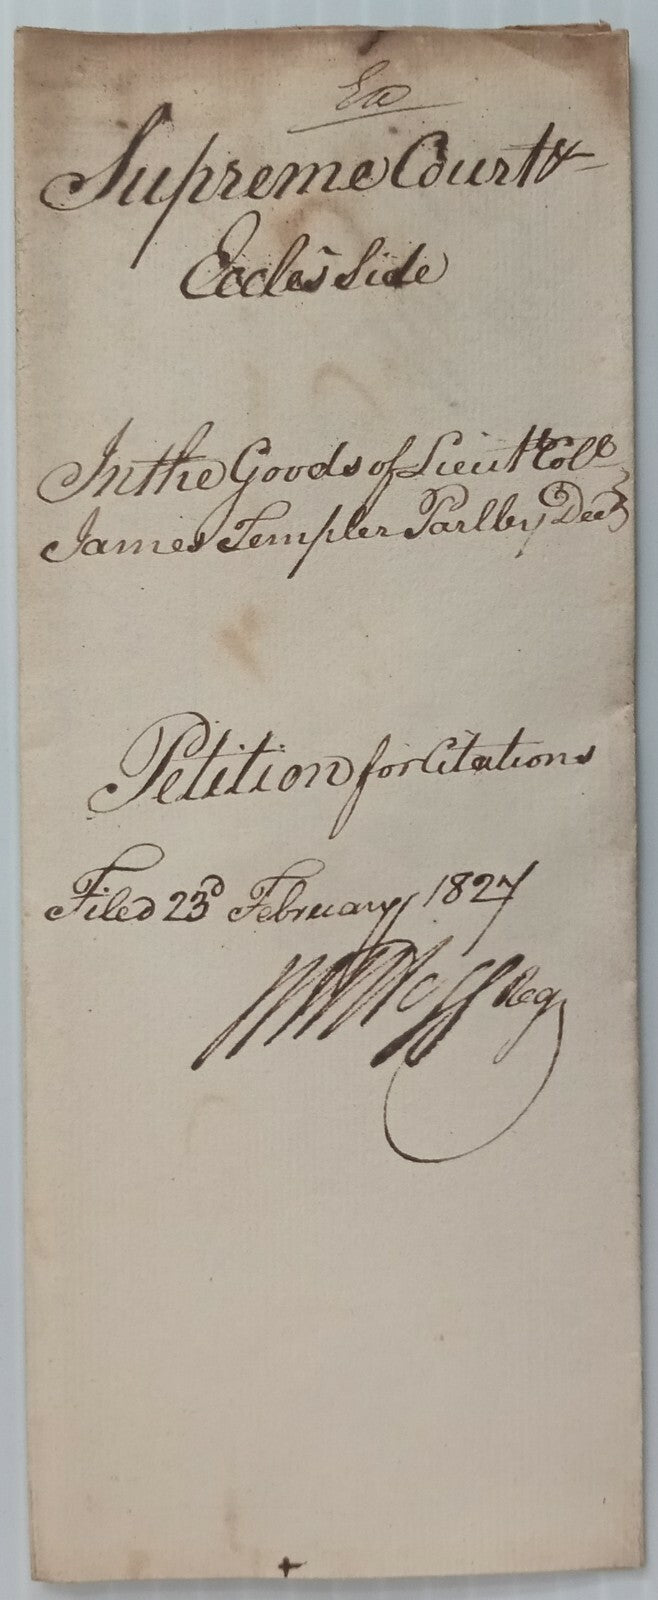 Supreme Court &
Eccles Side
In the Goods of Lieut Coll
James Templer Parlby Decd
Petition for Citations
Filed 23d February 1827
Reg